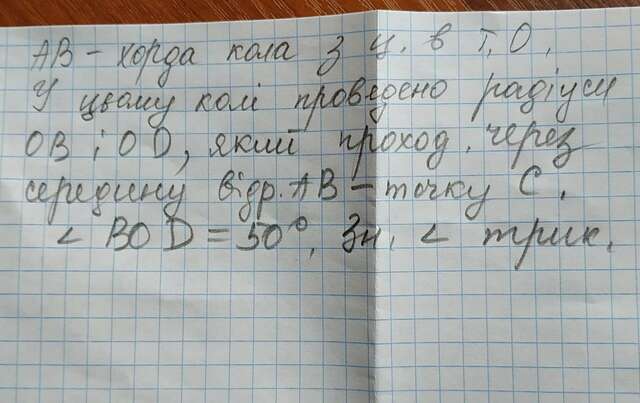 АВ – хорда кола з ц. в т. О.
У цьому колі проведено радіуси
ОВ і ОD, який проход. через
середину відр. АВ – точку С.
< BOD = 50°, Зн. < трик.